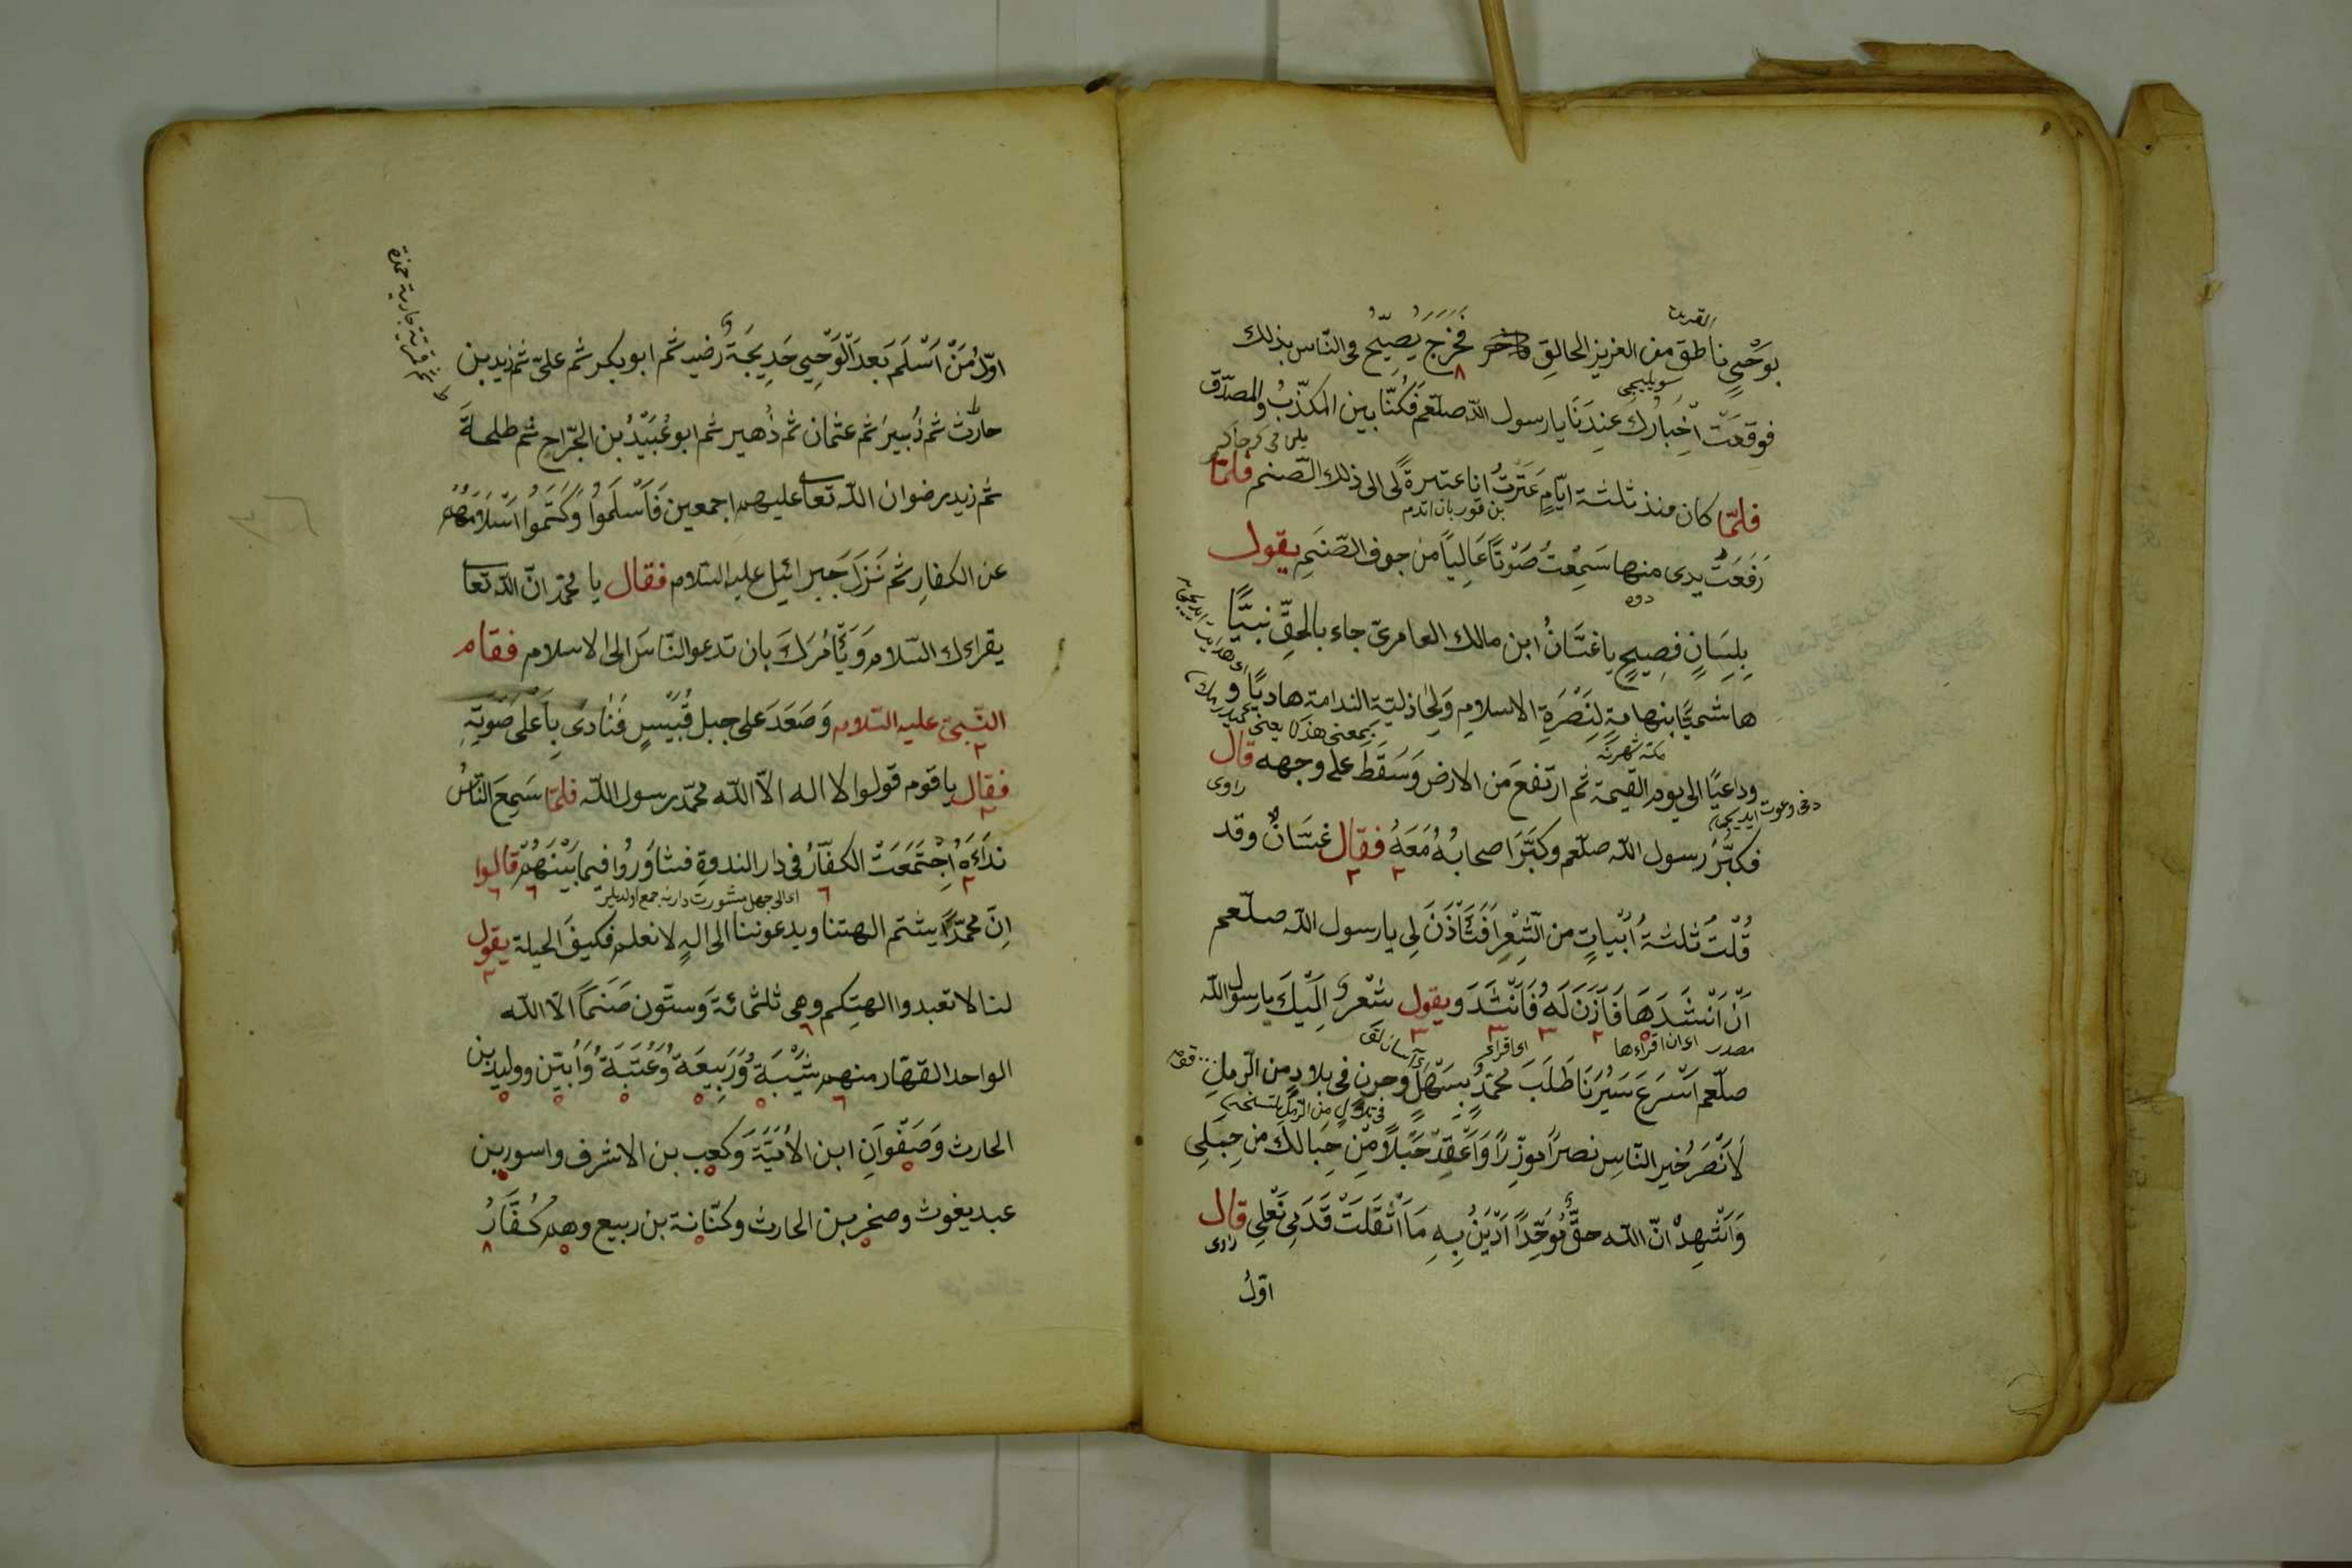 القديم
بوَحْيٍ ناطق من العزيز الخالقِ فَخَرَجَ يُصِيّحُ فى النّاس بذلك
سويليجى
فوقعَتْ اَخْبَارُك عِندَنَا يا رسول اللّه صلّعم فَكُنّا بين المكذّبُ والمصدّق
فلمّا كان منذ ثلثة ايّامٍ عَتَرتُ انا عتيرةً لى الى ذلك الصّنم فلمّا
بن قوربان اتدم
رَفَعَتُ يدى منها سَمِعْتُ صَوْتًا عَالِيًا من جوف الصّنَمِ يقول
دوه
بِلِسَانٍ فصِيحٍ يا غسّانُ ابن مالك العامرىّ جاء بالحقِّ نبيًّا
هاشميًّا بتهامةٍ لِنَصْرَةِ الاسلامِ وَلِخاذليّة الندامة هاديًا و
مكّه شهرنه
بمعنى هذا يعنى
وداعيًا الى يوم القيمة ثم ارتفعَ مَن الارض وَسَقَطَ على وجهه قال
راوى
فكبّرُ رسول اللّه صلّعم وكبّرَا صحابُهُ مَعَهُ فقال غسّانٌ وقد
قُلْتُ ثلثةُ اَبْياتٍ من الشِّعْرِ اَفَتَأْذَنَ لِى يا رسول اللّه صلّعم
اَنْ اَنْشَدَهَا فَاَذَنَ لَهُ فَاَنْشَدَ ويقول شعر اِلَيْكَ يا رسول اللّه
مصدر اى ان اقراءها اى اقراء
صلّعم اَسْرَعَ سَيْرَنَا طَلَبَ محمّدٍ بِسَهْلٍ وحزن فى بلادٍ من الرّملِ
لَاَنْصَرُ خيرِ النّاسِ نصرًا موزّرًا وَاَعْقِدْ حَبْلاً مِّنْ حِبَالِكَ مِن حِبَلِى
وَاَشْهِدْ انّ اللّه حقٌّ مُوَحِّدًا اَدِينُ بِهِ مَا اَثْقَلَتْ قَدَمِى نَعْلِى قال
راوى
اوّلُ
اوّلُ مَنْ اَسْلَمَ بَعدَ الْوَحْىِ خَدِيجَةُ رضيـ ثم ابو بكر ثم علىّ ثم زيد بن
حارث ثم زُبيرُ ثم عثمان ثم زُهير ثم ابو عُبَيْدُ بن الجرّاحِ ثم طلحةَ
ثم زيد رضوان اللّه تعا عليهم اجمعين فَاَسْلَمُوا وَكَتَمُوا اسْلَامَهُمْ
عن الكفارِ ثم نَزَلَ جبرائيل عليه السّلام فقال يا محمّد انّ اللّه تعا
يقراءك السّلام وَيَأْمُرَكَ بان تدعو النّاسَ الى الاسلام فقام
النّبىّ عليه السّلام وَصَعَدَ على جبل قُبَيْسٍ فَنَادَى بِاَعْلَى صَوتِهِ
فقال يا قوم قولوا لا اله الاّ اللّه محمّد رسول اللّه فلمّا سَمِعَ النّاسُ
نداءَهُ اجْتَمَعَتْ الكفّارُ فى دار الندوةِ فتشاوَرُوا فيما بَيْنَهُمْ قالوا
اى الى جهل مشورت دارينه جمع اولديلر
اِنَّ محمّدًا يشتم الهتنا ويدعوننا الى الهٍ لا نعلم فكيفَ الحيلة يقول
لنا لا تعبدوا الهتِكم وهى ثلثمائة وستّون صَنَمًا الاّ اللّه
الواحد القهّار منهم شَيْبَةُ وَرَبِيعَةُ وَعُتْبَةُ وَاُبَىّ بن وولِيد بن
الحارث وَصَفْوَانِ ابن الاُمَيَّةَ وكعب بن الاشرف واسود بن
عبد يغوث وصخر بن الحارث وكنّانة بن ربيع وهم كُفَّارُ